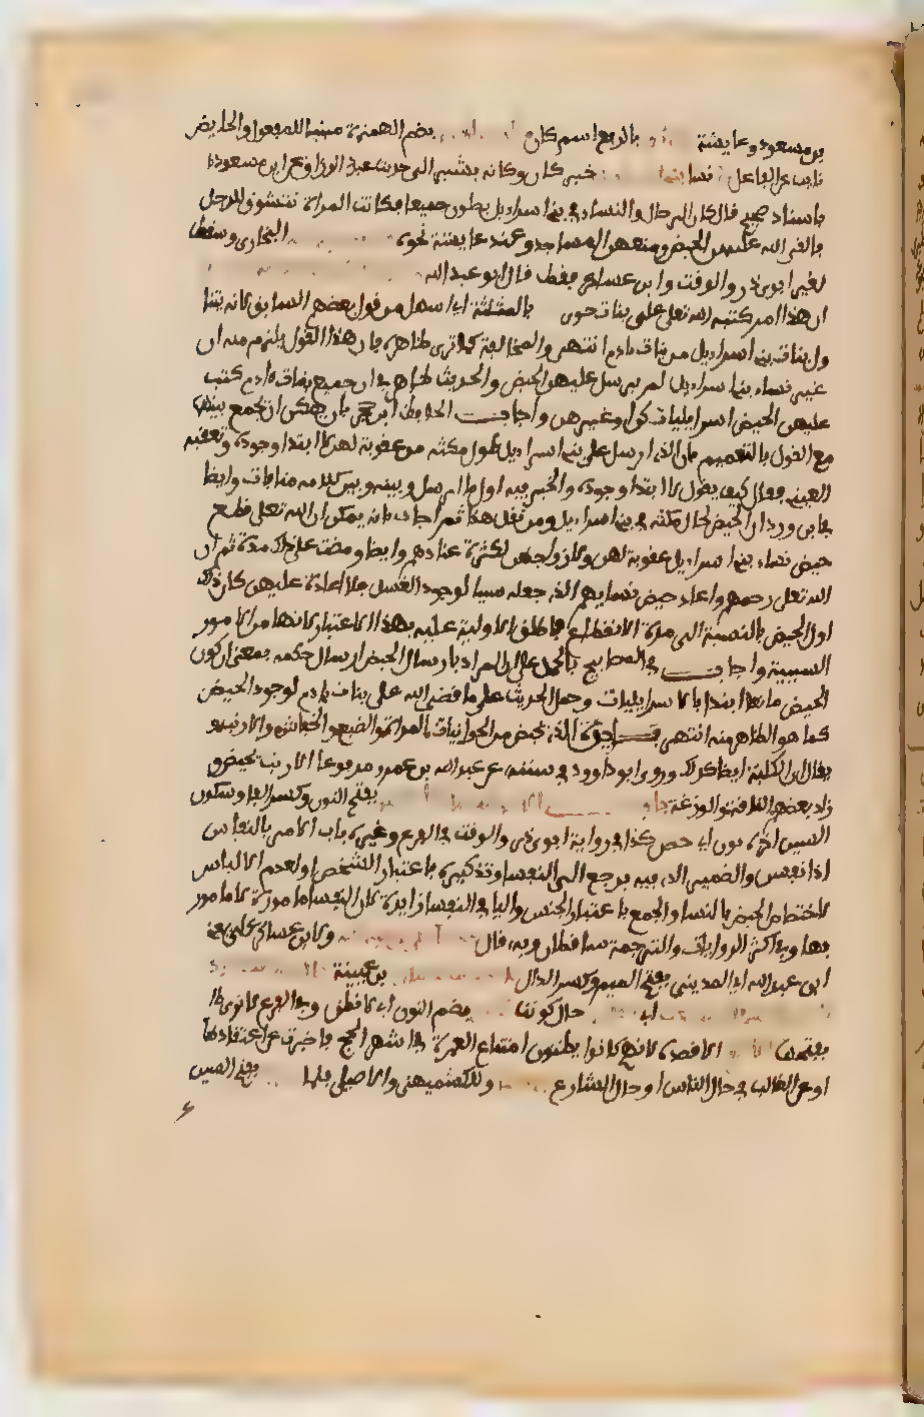 بن مسعود وعايشة بالرفع اسم كان بضم الهمزة مبنيا للمفعول والحيض
نايب عن الفاعل خبر كان وكانه يشير الى حديث عبد الرزاق عن ابن مسعود
باسناد صحيح قال كان الرجال والنساء في بني اسراءيل يصلون جميعا فكانت المراة تتشوف للرجل
فالقى الله عليهن الحيض ومنعهن المساجد وعنده عن عايشة نحوه البخاري وسقط
لغير ابوي ذر والوقت وابن عساكر فقط قال ابو عبد الله
ان هذا امر كتبه الله تعلى على بنات حوى بالمثلثة اي اشمل من قول بعضهم السابق لانه يتنا
ول بنات بني اسراءيل من بنات ءادم انتهى والمخالفة كما ترى ظاهرة فان هذا القول يلزم منه ان
غير نساء بني اسراءيل لم يرسل عليهن الحيض والحديث ظاهر في ان جميع بنات ءادم كتب
عليهن الحيض اسراءيليات كن او غيرهن واجاب الحافظ ابن حجر بانه يمكن ان يجمع بينهما
مع القول بالتعميم بان الذي ارسل على بني اسراءيل طول مكثه من عقوبة لهن لا ابتدا وجوده وتعقبه
العيني فقال كيف يقول لا ابتدا وجوده والخبر فيه اول ما ارسل وبينه وبين كلامه منافات وايضا
فاين ورد ان الحيض طال مكثه في بني اسراءيل ومن نقل هذا ثم اجاب بانه يمكن ان الله تعلى قطع
حيض نساء بني اسراءيل عقوبة لهن ولازواجهن لكثرة عنادهم وايضا ومضت على ذلك مدة ثم ان
الله تعلى رحمهم واعاد حيض نسايهم الذي جعله سببا لوجود النسل فلما اعادة عليهن كان ذلك
اول الحيض بالنسبة الى مدة الانقطاع فاطلق الاولية عليه بهذا الاعتبار لانها من الامور
النسبية واجاب في المصابيح بالحمل على ان المراد بارسال الحيض ارسال حكمه بمعنى ان كون
الحيض مانعا ابتدا بالاسراءيليات وحمل الحديث على ما قضى الله على بنات ءادم لوجود الحيض
كما هو الظاهر منه انتهى الذي تحيض من الحيوانات المراة والضبع والخفاش والارنب و
يقال ان الكلبة ايضا كذلك وروى ابو داوود في سننه عن عبد الله بن عمرو مرفوعا الارنب تحيض و
زاد بعضهم الناقة والوزغة بفتح النون وكسر الفا وسكون
السين اخره نون اي حضن كذا في رواية ابوي ذر والوقت في الفرع وغيره باب الامر بالنفاس
اذا نفسن والضمير الذي فيه يرجع الى النفسا وتذكيره باعتبار الشخص او لعدم الالباس
لاختصاص الحيض بالنسا والجمع باعتبار الجنس واليا في النفسا زايدة لان النفسا مامورة لا مامور
بها وفي اكثر الروايات والترجمة ساقطان وبه قال ولابن عساكر علي يعني
ابن عبد الله اي المديني بفتح الميم وكسر الدال بن عيينة
اي حال كوننا بضم النون اي لا نظن وفي الفرع لا نرى الا
بفتحها الا قصده لانهم كانوا يظنون امتناع العمرة في اشهر الحج فاخبرت عن اعتقادها
او عن الغالب في حال الناس او حال الشارع وللكشميهني والاصيلي فلما بفتح السين